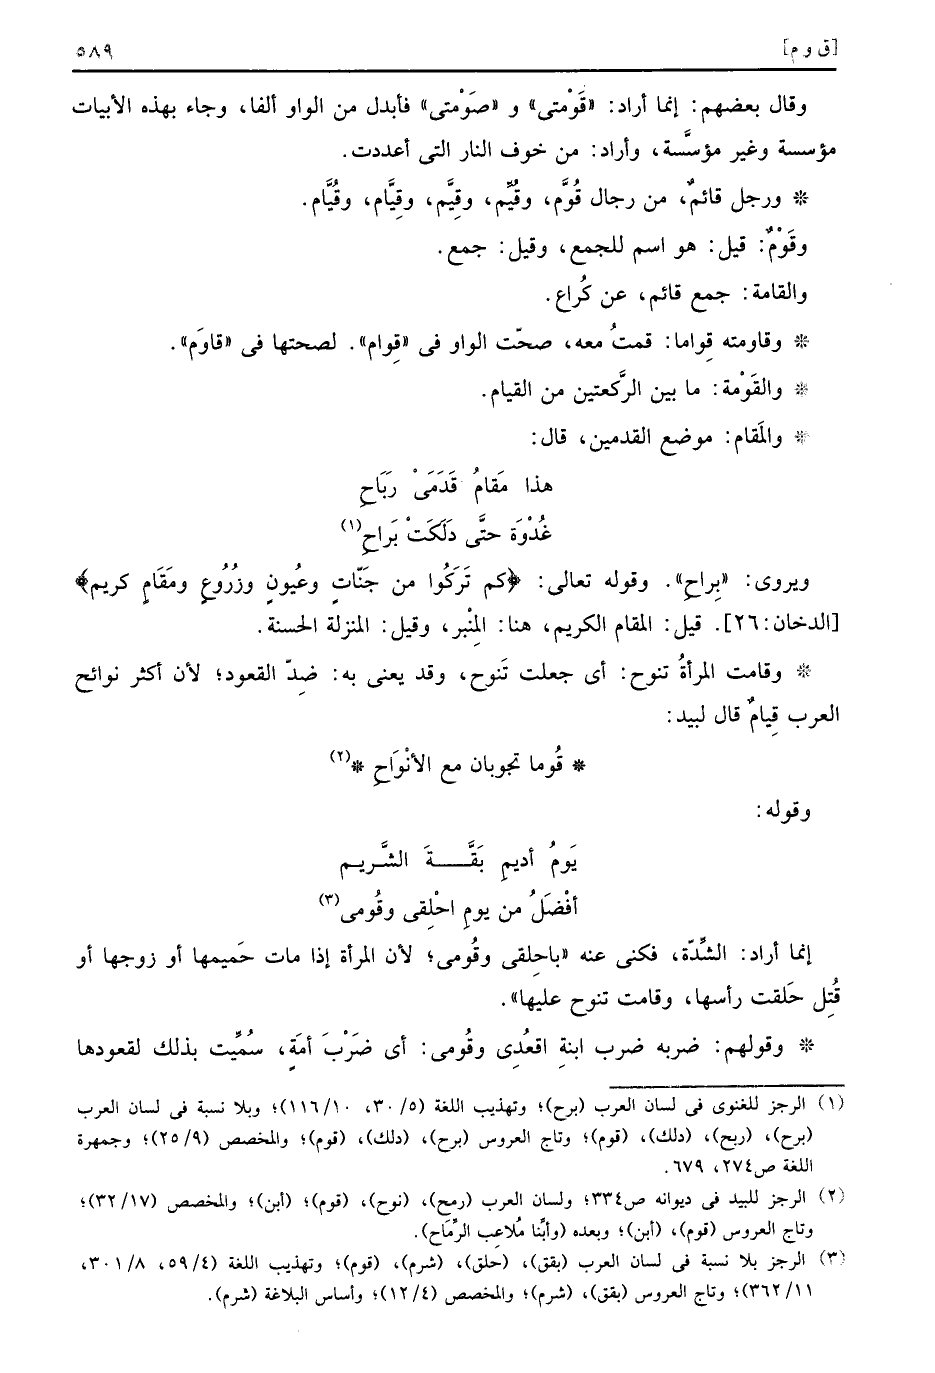 [ق و م] ٥٨٩
وقال بعضهم: إنما أراد: «قَوْمتى» و «صَوْمتى» فأبدل من الواو ألفا، وجاء بهذه الأبيات
مؤسسة وغير مؤسَّسة، وأراد: من خوف النار التى أعددت.
* ورجل قائمٌ، من رجال قُوَّم، وقُيَّم، وقِيَّم، وقِيَّام، وقُيَّام.
وقَوْمٌ: قيل: هو اسم للجمع، وقيل: جمع.
والقامة: جمع قائم، عن كُراع.
* وقاومته قِواما: قمتُ معه، صحّت الواو فى «قِوام». لصحتها فى «قاوَم».
* والقَوْمة: ما بين الرَّكعتين من القيام.
* والمَقام: موضع القدمين، قال:
هذا مَقامُ قَدَمَىْ رَبَاحِ
غُدْوَة حتَّى دَلَكَتْ بَراحِ(١)
ويروى: «بِراحِ». وقوله تعالى: ﴿كم تَرَكُوا من جَنَّاتٍ وعُيونٍ وزُرُوعٍ ومَقَامٍ كريم﴾
[الدخان:٢٦]. قيل: المقام الكريم، هنا: المِنْبر، وقيل: المنزلة الحسنة.
* وقامت المرأةُ تنوح: أى جعلت تَنوح، وقد يعنى به: ضِدّ القعود؛ لأن أكثر نوائح
العرب قِيامٌ قال لبيد:
* قُوما تجوبان مع الأنْوَاحِ *(٢)
وقوله:
يَومُ أديمِ بَقَّـــةَ الشَّريـم
أفْضَلُ من يومِ احْلِقى وقُومى(٣)
إنما أراد: الشِّدّة، فكنى عنه «باحِلقى وقُومى؛ لأن المرأة إذا مات حَميمها أو زوجها أو
قُتِل حَلَقت رأسها، وقامت تنوح عليها».
* وقولهم: ضربه ضرب ابنةِ اقعُدِى وقُومى: أى ضَرْبَ أمَةٍ، سُمِّيت بذلك لقعودها
(١) الرجز للغنوى فى لسان العرب (برح)؛ وتهذيب اللغة (٣٠/٥، ١١٦/١٠)؛ وبلا نسبة فى لسان العرب
(برح)، (ربح)، (دلك)، (قوم)؛ وتاج العروس (برح)، (دلك)، (قوم)؛ والمخصص (٢٥/٩)؛ وجمهرة
اللغة ص٢٧٤، ٦٧٩.
(٢) الرجز للبيد فى ديوانه ص٣٣٤؛ ولسان العرب (رمح)، (نوح)، (قوم)؛ (أبن)؛ والمخصص (٣٢/١٧)؛
وتاج العروس (قوم)، (أبن)؛ وبعده (وأبِّنا مُلاعِب الرِّمَاح).
(٣) الرجز بلا نسبة فى لسان العرب (بقق)، (حلق)، (شرم)، (قوم)؛ وتهذيب اللغة (٥٩/٤، ٣٠١/٨،
٣٦٢/١١)؛ وتاج العروس (بقق)، (شرم)؛ والمخصص (١٢/٤)؛ وأساس البلاغة (شرم).